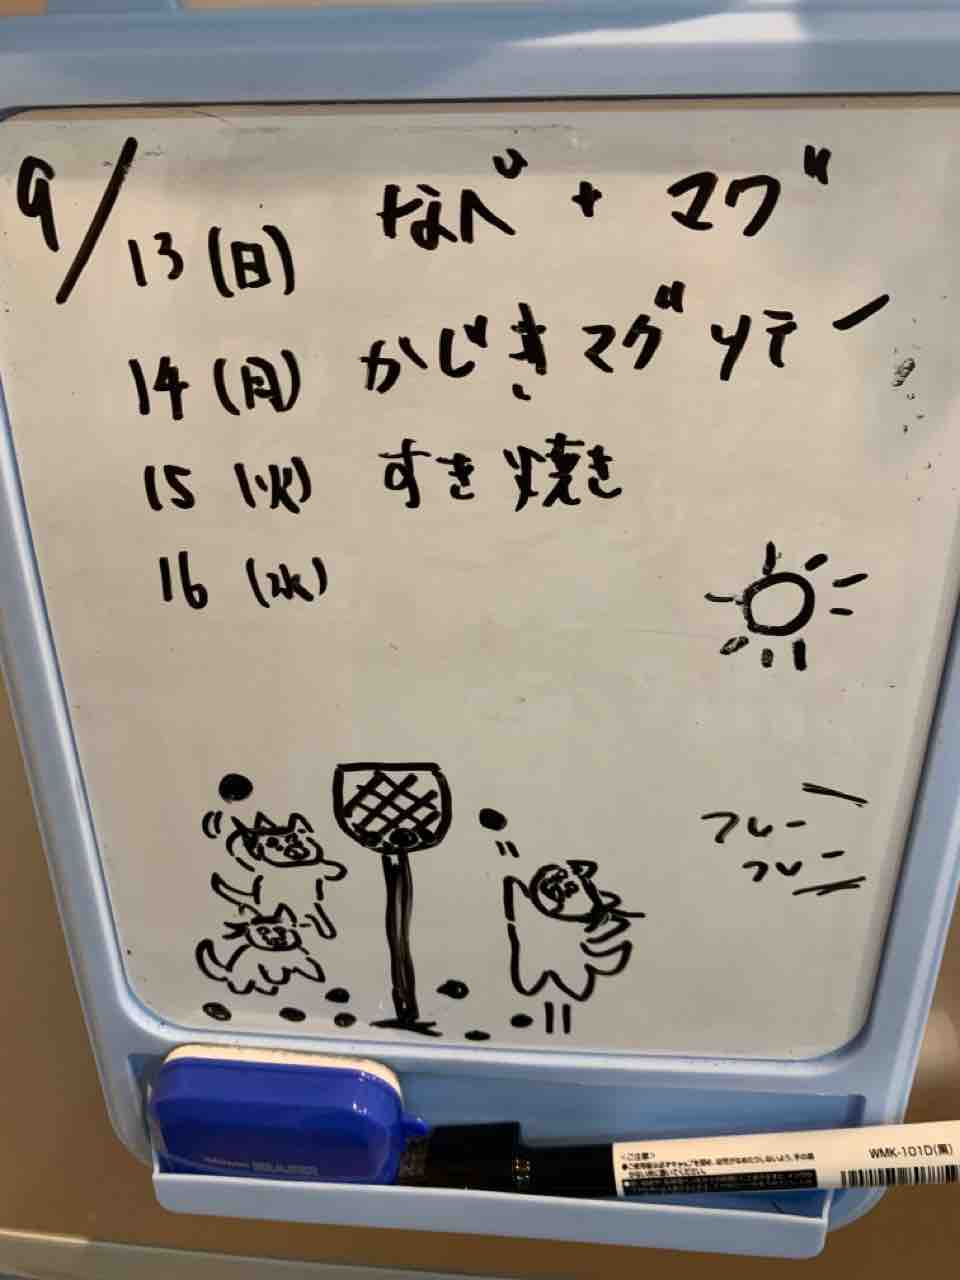 9/13(日) なべ + マグ
14(月) かじきマグ ソテー
15(火) すき焼き
16(水)
フレー
フレー
<ご注意>
WMK-101D(黒)